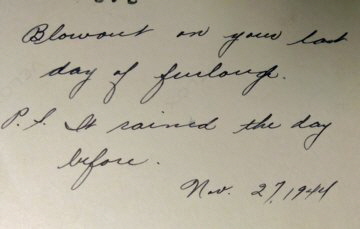 Blowout on your last
day of furlough.
P.S. It rained the day
before.
Nov. 27, 1944